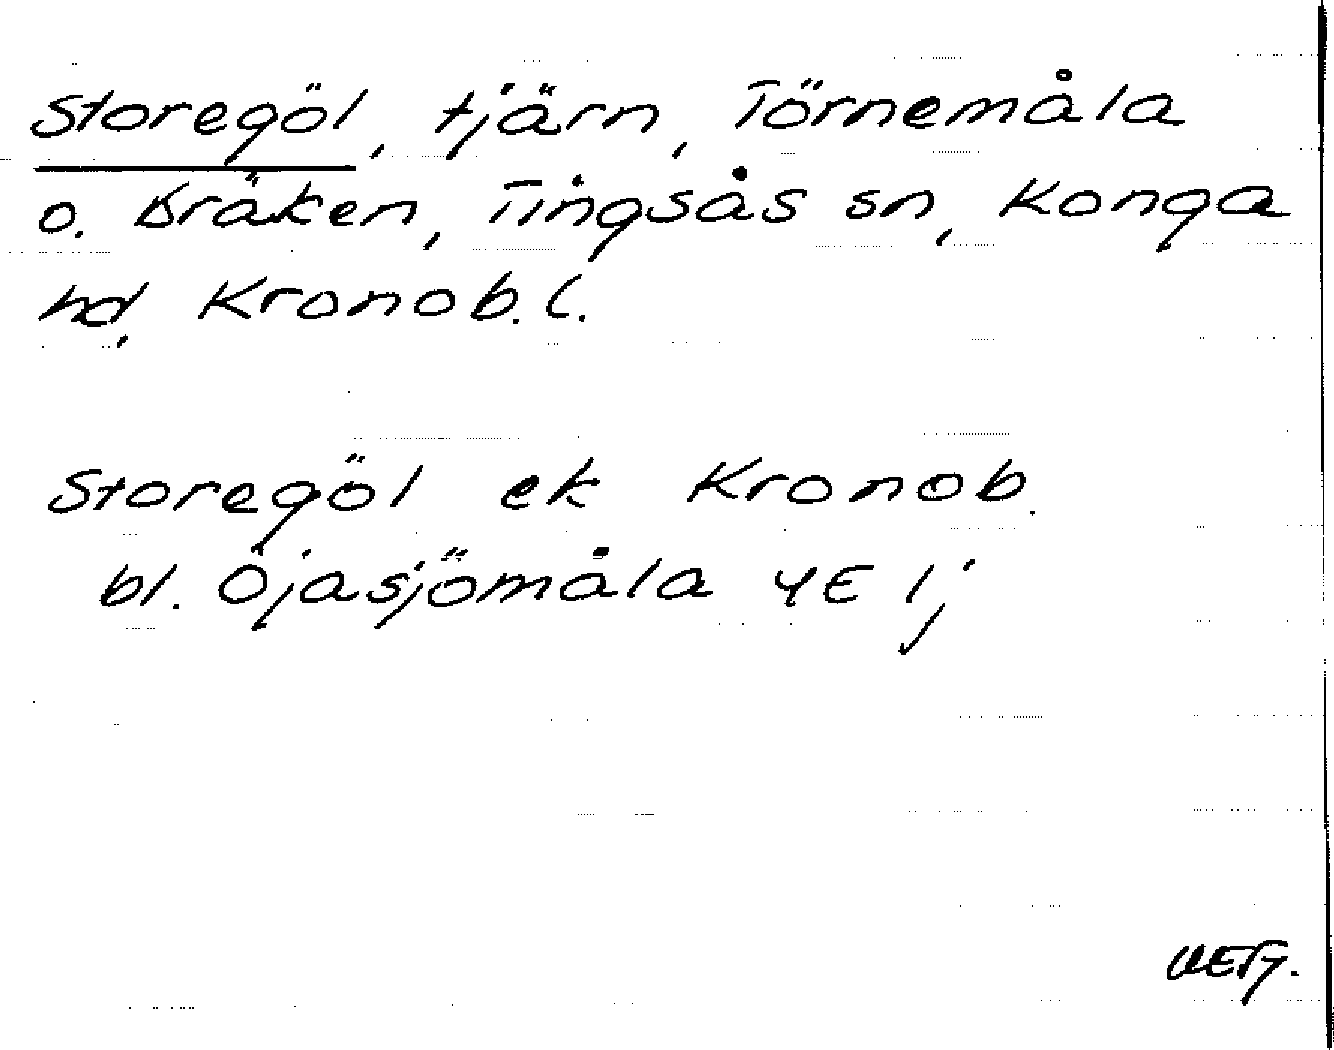 Storegöl, tjärn, Törnemåla
o. Dräken, Tingsås sn, Konga
hd, Kronob. l.
Storegöl ek Kronob.
bl. Öjasjömåla 4E 1j